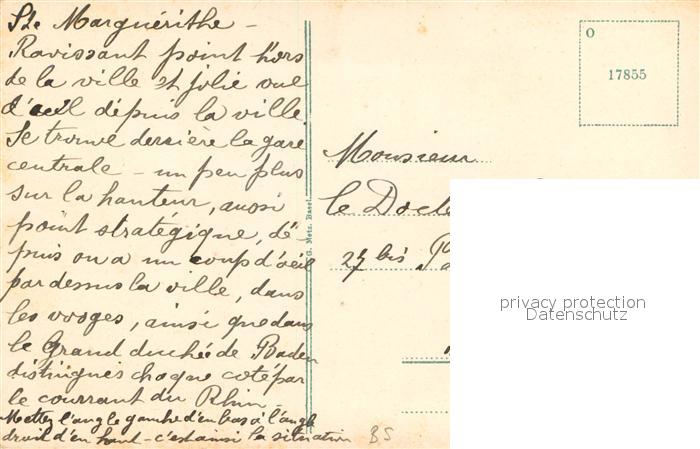 Ste Marguérithe -
Ravissant point hors
de la ville et jolie vue
d'oeil dépuis la ville.
Se trouve derrière la gare
centrale - un peu plus
sur la hauteur, aussi
point stratégique, dé-
puis on a un coup d'oeil
par dessus la ville, dans
les vosges, ainsi que dans
le Grand duchée de Baden
distingués chaque coté par
le courrant du Rhin -
Mettez l'angle gauche d'en bas à l'angle
droit d'en haut - c'est ainsi la situation
BS
G. Metz, Basel.
O
17855
Monsieur
le Docte
27 bis
privacy protection
Datenschutz